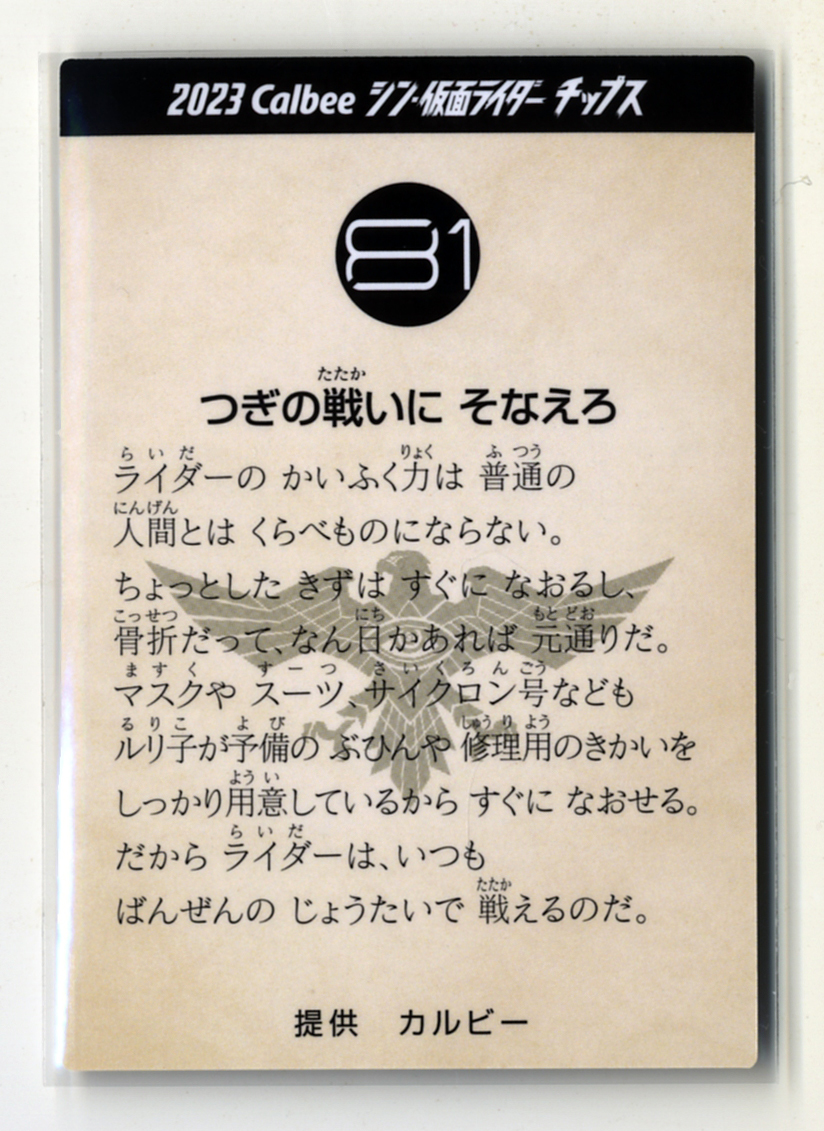 2023 Calbee シン・仮面ライダー チップス
81
たたか
つぎの戦いに そなえろ
らいだ りょく ふつう
ライダーの かいふく力は 普通の
にんげん
人間とは くらべものにならない。
ちょっとした きずは すぐに なおるし、
こっせつ にち もとどお
骨折だって、なん日かあれば 元通りだ。
ますく すーつ さいくろんごう
マスクや スーツ、サイクロン号なども
るりこ よび しゅうりよう
ルリ子が予備の ぶひんや 修理用のきかいを
ようい
しっかり用意しているから すぐに なおせる。
らいだ
だから ライダーは、いつも
たたか
ばんぜんの じょうたいで 戦えるのだ。
提供 カルビー